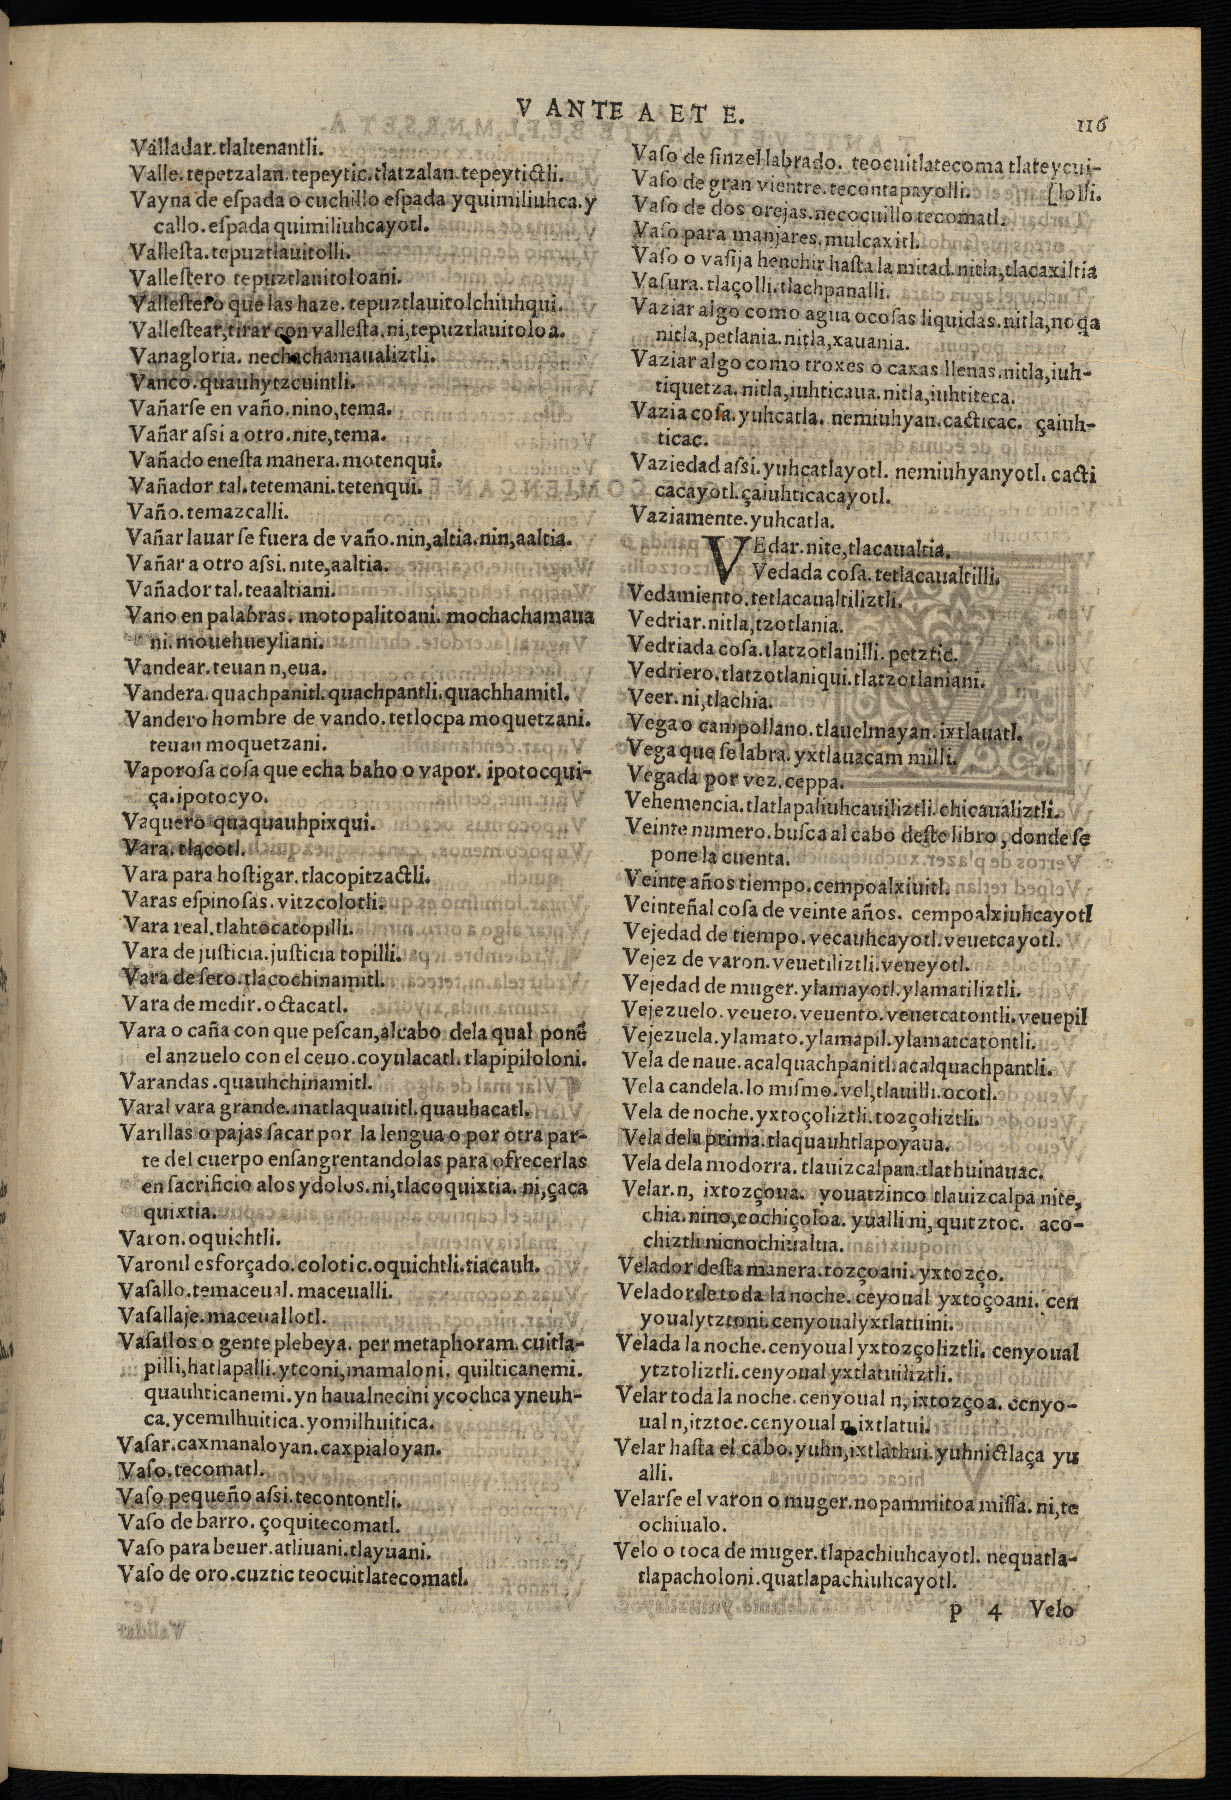 V ANTE A ET E.
116
Valladar. tlaltenantli.
Valle. tepetzalan. tepeytic. tlatzalan. tepeytictli.
Vayna de eſpada o cuchillo eſpada yquimiliuhca. y
callo. eſpada quimiliuhcayotl.
Valleſta. tepuztlauitolli.
Valleſtero tepuztlauitoloani.
Valleſtero que las haze. tepuztlauitolchiuhqui.
Valleſtear, tirar con valleſta. ni, tepuztlauitoloa.
Vanagloria. nechachamaualiztli.
Vanco. quauhytzcuintli.
Vañarſe en vaño. nino, tema.
Vañar aſsi a otro. nite, tema.
Vañado eneſta manera. motenqui.
Vañador tal. tetemani. tetenqui.
Vaño. temazcalli.
Vañar lauar ſe fuera de vaño. nin, altia. nin, aaltia.
Vañar a otro aſsi. nite, aaltia.
Vañador tal. teaaltiani.
Vano en palabras. motopalitoani. mochachamaua
ni. mouehueyliani.
Vandear. teuan n, eua.
Vandera. quachpanitl. quachpantli. quachhamitl.
Vandero hombre de vando. tetlocpa moquetzani.
teuan moquetzani.
Vaporoſa coſa que echa baho o vapor. ipotocqui-
ça. ipotocyo.
Vaquero quaquauhpixqui.
Vara. tlacotl.
Vara para hoſtigar. tlacopitzactli.
Varas eſpinoſas. vitzcolotli.
Vara real. tlahtocatopilli.
Vara de juſticia. juſticia topilli.
Vara de ſeto. tlacochinamitl.
Vara de medir. octacatl.
Vara o caña con que peſcan, al cabo dela qual ponẽ
el anzuelo con el ceuo. coyulacatl. tlapipiloloni.
Varandas. quauhchinamitl.
Varal vara grande. matlaquauitl. quauhacatl.
Varillas o pajas ſacar por la lengua o por otra par-
te del cuerpo enſangrentandolas para ofrecerlas
en ſacrificio alos ydolos. ni, tlacoquixtia. ni, çaca
quixtia.
Varon. oquichtli.
Varonil esforçado. colotic. oquichtli. tiacauh.
Vaſallo. temaceual. maceualli.
Vaſallaje. maceuallotl.
Vaſallos o gente plebeya. per metaphoram. cuitla-
pilli, hatlapalli. ytconi, mamaloni. quilticanemi.
quauhticanemi. yn haualnecini ycochca yneuh-
ca. ycemilhuitica. yomilhuitica.
Vaſar. caxmanaloyan. caxpialoyan.
Vaſo. tecomatl.
Vaſo pequeño aſsi. tecontontli.
Vaſo de barro. çoquitecomatl.
Vaſo para beuer. atliuani. tlayuani.
Vaſo de oro. cuztic teocuitlatecomatl.
Vaſo de ſinzel labrado. teocuitlatecoma tlateycui-
Vaſo de gran vientre. tecontapayolli. [lolli.
Vaſo de dos orejas. necocuillo tecomatl.
Vaſo para manjares. mulcaxitl.
Vaſo o vaſija henchir haſta la mitad. nitla, tlacaxiltia
Vaſura. tlaçolli. tlachpanalli.
Vaziar algo como agua o coſas liquidas. nitla, noqa
nitla, petlania. nitla, xauania.
Vaziar algo como troxes o caxas llenas. nitla, iuh-
tiquetza. nitla, iuhticaua. nitla, iuhtiteca.
Vazia coſa. yuhcatla. nemiuhyan. cacticac. çaiuh-
ticac.
Vaziedad aſsi. yuhcatlayotl. nemiuhyanyotl. cacti
cacayotl. çaiuhticacayotl.
Vaziamente. yuhcatla.
VEdar. nite, tlacaualtia.
Vedada coſa. tetlacaualtilli.
Vedamiento. tetlacaualtiliztli.
Vedriar. nitla, tzotlania.
Vedriada coſa. tlatzotlanilli. petztic.
Vedriero. tlatzotlaniqui. tlatzotlaniani.
Veer. ni, tlachia.
Vega o campo llano. tlauelmayan. ixtlauatl.
Vega que ſe labra. yxtlauacam milli.
Vegada por vez. ceppa.
Vehemencia. tlatlapaliuhcauiliztli. chicaualiztli.
Veinte numero. buſca al cabo deſte libro, donde ſe
pone la cuenta.
Veinte años tiempo. cempoalxiuitl.
Veinteñal coſa de veinte años. cempoalxiuhcayotl
Vejedad de tiempo. vecauhcayotl. veuetcayotl.
Vejez de varon. veuetiliztli. veueyotl.
Vejedad de muger. ylamayotl. ylamatiliztli.
Vejezuelo. veueto. veuento. veuetcatontli. veuepil
Vejezuela. ylamato. ylamapil. ylamatcatontli.
Vela de naue. acalquachpanitl. acalquachpantli.
Vela candela. lo miſmo. vel, tlauilli. ocotl.
Vela de noche. yxtoçoliztli. tozçoliztli.
Vela dela prima. tlaquauhtlapoyaua.
Vela dela modorra. tlauizcalpan. tlathuinauac.
Velar. n, ixtozçoua. youatzinco tlauizcalpa nite,
chia. nino, cochiçoloa. yualli ni, quitztoc. aco-
chiztli nicnochiualtia.
Velador deſta manera. tozçoani. yxtozço.
Velador de toda la noche. ceyoual yxtoçoani. cen
youalytztoni. cenyoualyxtlatuini.
Velada la noche. cenyoual yxtozçoliztli. cenyoual
ytztoliztli. cenyoual yxtlatuiliztli.
Velar toda la noche. cenyoual n, ixtozçoa. cenyo-
ual n, itztoc. cenyoual n, ixtlatui.
Velar haſta el cabo. yuhn, ixtlathui. yuhnictlaça yu
alli.
Velarſe el varon o muger. nopammitoa miſſa. ni, te
ochiualo.
Velo o toca de muger. tlapachiuhcayotl. nequatla-
tlapacholoni. quatlapachiuhcayotl.
p 4 Velo